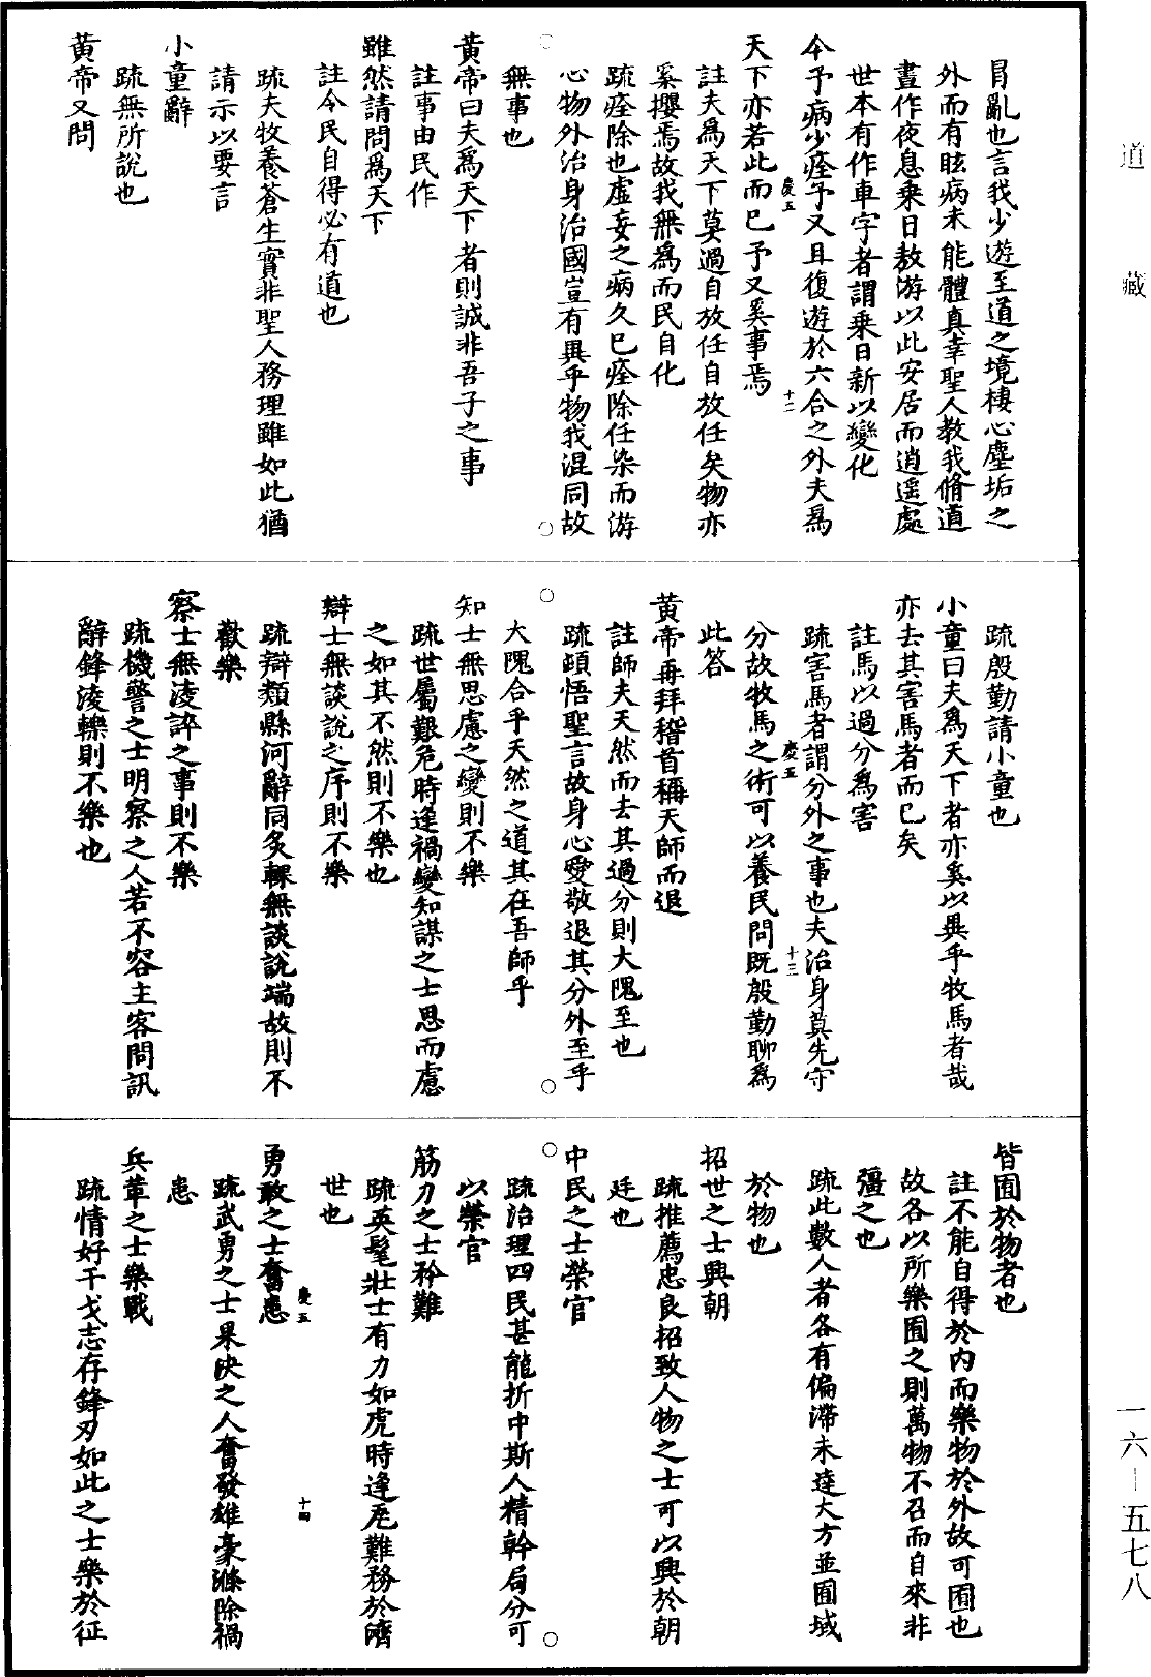 道藏
冐亂也言我少遊至道之境棲心塵垢之
外而有眩病未能體真幸聖人教我脩道
晝作夜息乗日敖游以此安居而逍遥處
世本有作車字者謂乗日新以變化
今予病少痊予又且復遊於六合之外夫爲
慶五
十二
天下亦若此而已予又奚事焉
註夫爲天下莫過自放任自放任矣物亦
奚攖焉故我無爲而民自化
疏痊除也虚妄之病久已痊除任染而游
心物外治身治國豈有異乎物我混同故
無事也
黄帝曰夫爲天下者則誠非吾子之事
註事由民作
雖然請問爲天下
註今民自得必有道也
疏夫牧養蒼生實非聖人務理雖如此猶
請示以要言
小童辭
疏無所說也
黄帝又問
疏殷勤請小童也
小童曰夫爲天下者亦奚以異乎牧馬者哉
亦去其害馬者而已矣
註馬以過分爲害
疏害馬者謂分外之事也夫治身莫先守
慶五
十三
分故牧馬之術可以養民問既殷勤聊爲
此答
黄帝再拜稽首稱天師而退
註師夫天然而去其過分則大隗至也
疏頓悟聖言故身心愛敬退其分外至乎
大隗合乎天然之道其在吾師乎
知士無思慮之變則不樂
疏世屬艱危時逢禍變知謀之士思而慮
之如其不然則不樂也
辯士無談說之序則不樂
疏辯類縣河辭同炙輠無談說端故則不
歡樂
察士無淩誶之事則不樂
疏機警之士明察之人若不容主客問訊
辭鋒淩轢則不樂也
皆囿於物者也
註不能自得於内而樂物於外故可囿也
故各以所樂囿之則萬物不召而自來非
彊之也
疏此數人者各有偏滯未達大方並囿域
於物也
招世之士興朝
疏推薦忠良招致人物之士可以興於朝
廷也
中民之士榮官
疏治理四民甚能折中斯人精幹局分可
以榮官
筋力之士矜難
疏英髦壯士有力如虎時逢厄難務於濟
世也
慶五
十四
勇敢之士奮患
疏武勇之士果决之人奮發雄豪滌除禍
患
兵革之士樂戰
疏情好干戈志存鋒刃如此之士樂於征
一六—五七八